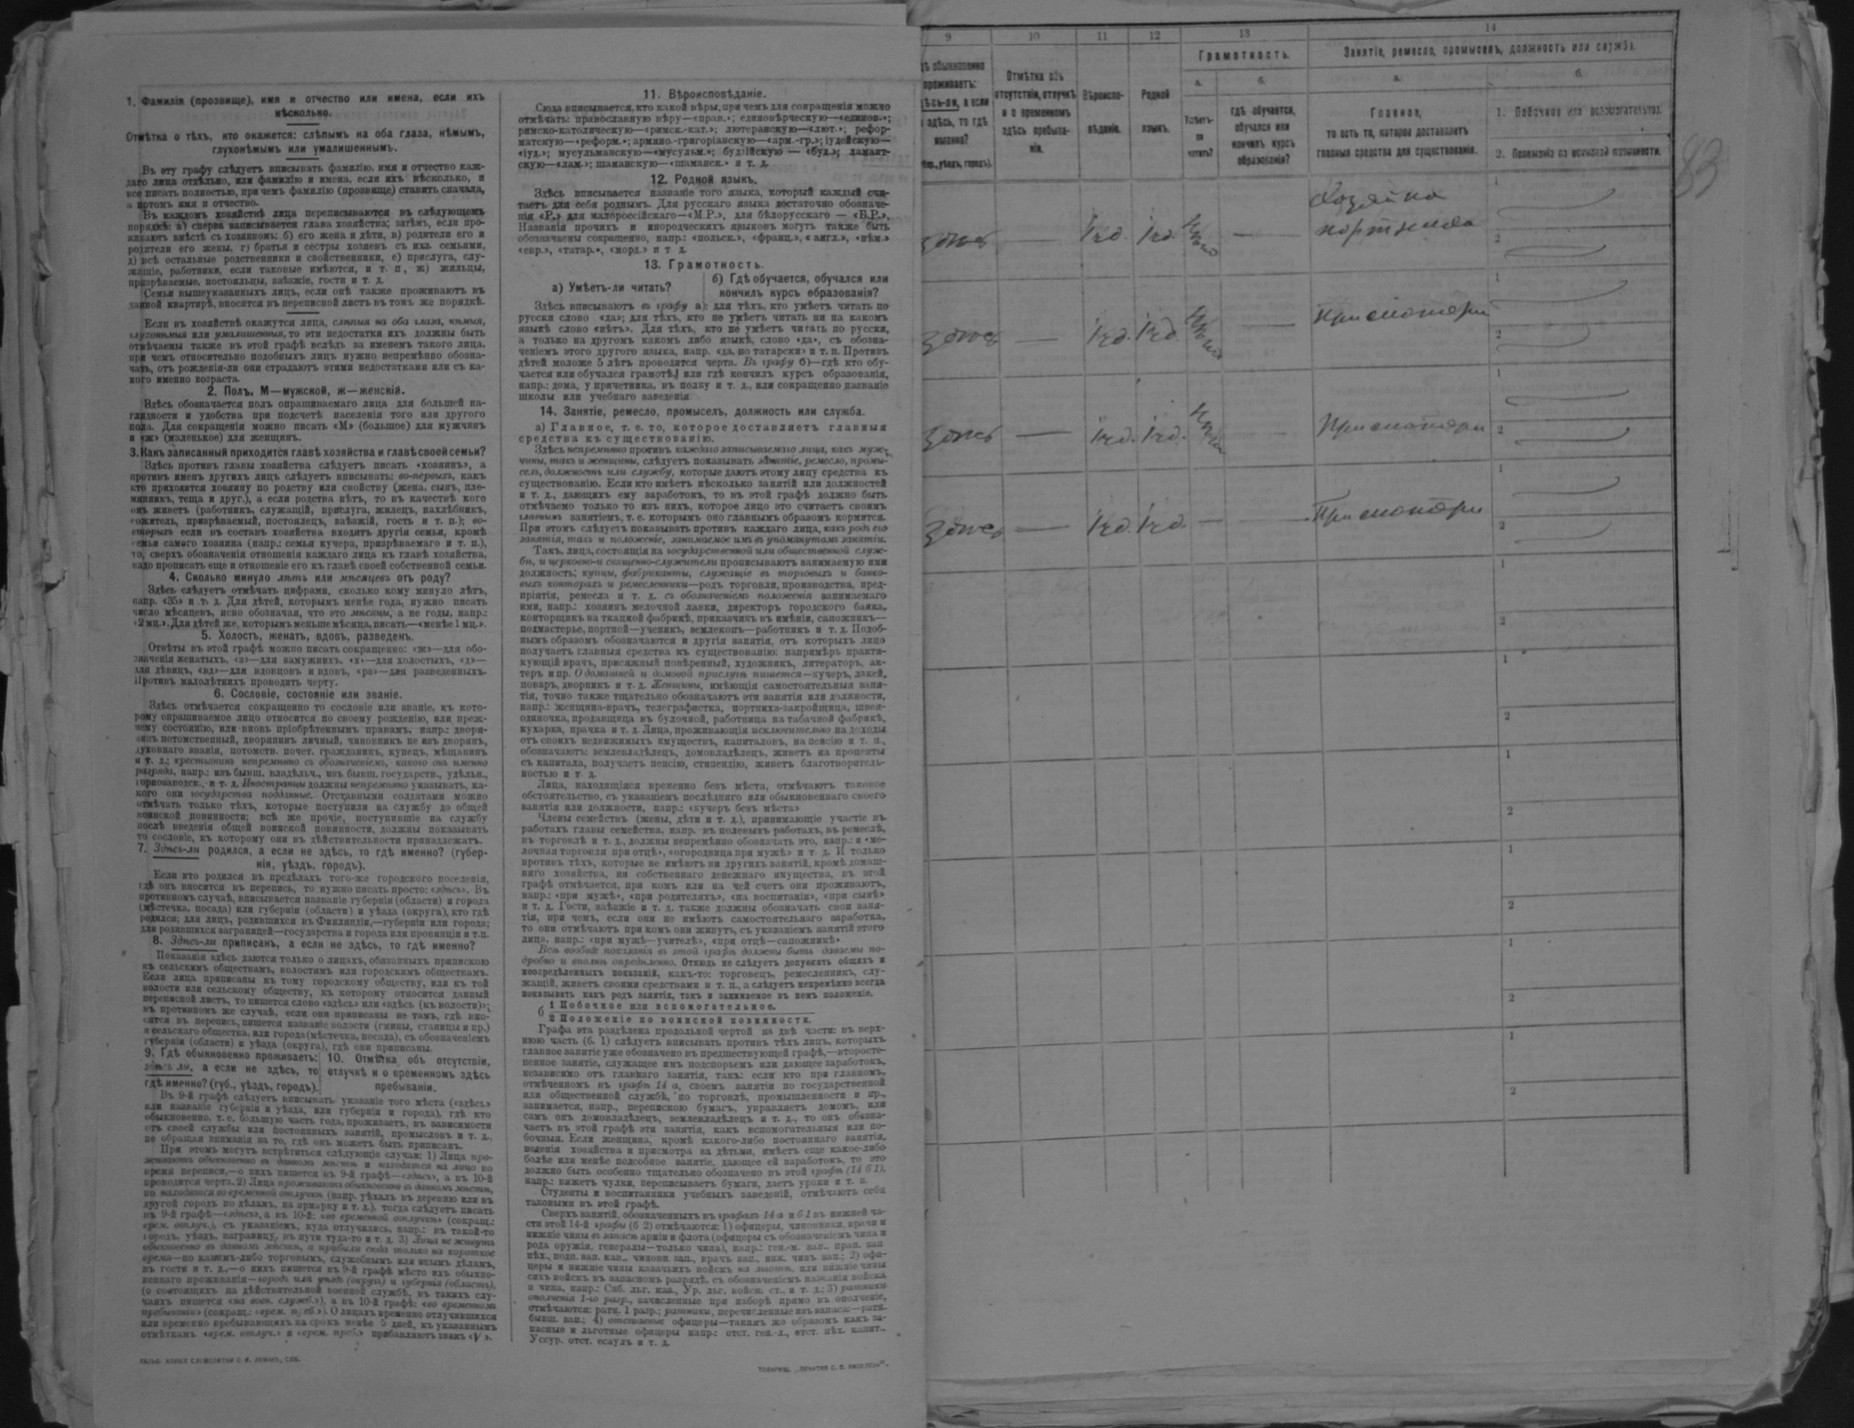 1. Фамилія (прозвище), имя и отчество или имена, если ихъ
нѣсколько.
Отмѣтка о тѣхъ, кто окажется: слѣпымъ на оба глаза, нѣмымъ,
глухонѣмымъ или умалишеннымъ.
Въ эту графу слѣдуетъ вписывать фамилію, имя и отчество каж-
даго лица отдѣльно, или фамилію и имена, если ихъ нѣсколько, и
все писать полностью, при чемъ фамилію (прозвище) ставить сначала,
а потомъ имя и отчество.
Въ каждомъ хозяйствѣ лица переписываются въ слѣдующемъ
порядкѣ: а) сперва записывается глава хозяйства; затѣмъ, если про-
живаютъ вмѣстѣ съ хозяиномъ: б) его жена и дѣти, в) родители его и
родители его жены, г) братья и сестры хозяевъ съ ихъ семьями,
д) всѣ остальные родственники и свойственники, е) прислуга, слу-
жащіе, работники, если таковые имѣются, и т. п., ж) жильцы,
призрѣваемые, постояльцы, заѣзжіе, гости и т. д.
Семьи вышеуказанныхъ лицъ, если онѣ также проживаютъ въ
данной квартирѣ, вносятся въ переписной листъ въ томъ же порядкѣ.
Если въ хозяйствѣ окажутся лица, слѣпыя на оба глаза, нѣмыя,
глухонѣмыя или умалишенныя, то эти недостатки ихъ должны быть
отмѣчаемы также въ этой графѣ вслѣдъ за именемъ такого лица,
при чемъ относительно подобныхъ лицъ нужно непремѣнно обозна-
чать, отъ рожденія-ли они страдаютъ этими недостатками или съ ка-
кого именно возраста.
2. Полъ, М—мужской, ж—женскій.
Здѣсь обозначается полъ опрашиваемаго лица для большей на-
глядности и удобства при подсчетѣ населенія того или другого
пола. Для сокращенія можно писать «М» (большое) для мужчинъ
и «ж» (маленькое) для женщинъ.
3. Какъ записанный приходится главѣ хозяйства и главѣ своей семьи?
Здѣсь противъ главы хозяйства слѣдуетъ писать «хозяинъ», а
противъ именъ другихъ лицъ слѣдуетъ вписывать: во-первыхъ, какъ
кто приходится хозяину по родству или свойству (жена, сынъ, пле-
мянникъ, теща и друг.), а если родства нѣтъ, то въ качествѣ кого
онъ живетъ (работникъ, служащій, прислуга, жилецъ, нахлѣбникъ,
сожитель, призрѣваемый, постоялецъ, заѣзжій, гость и т. п.); во-
вторыхъ если въ составъ хозяйства входятъ другія семьи, кромѣ
семьи самого хозяина (напр.: семья кучера, призрѣваемаго и т. п.),
то, сверхъ обозначенія отношенія каждаго лица къ главѣ хозяйства,
надо прописать еще и отношеніе его къ главѣ своей собственной семьи.
4. Сколько минуло лѣтъ или мѣсяцевъ отъ роду?
Здѣсь слѣдуетъ отмѣчать цифрами, сколько кому минуло лѣтъ,
напр. «35» и т. д. Для дѣтей, которымъ менѣе года, нужно писать
число мѣсяцевъ, ясно обозначая, что это мѣсяцы, а не годы, напр.:
«2 мц.». Для дѣтей же, которымъ меньше мѣсяца, писать—«менѣе 1 мц.».
5. Холостъ, женатъ, вдовъ, разведенъ.
Отвѣты въ этой графѣ можно писать сокращенно: «ж»—для обо-
значенія женатыхъ, «з»—для замужнихъ, «х»—для холостыхъ, «д»—
для дѣвицъ, «вд»—для вдовцовъ и вдовъ, «ра»—для разведенныхъ.
Противъ малолѣтнихъ проводить черту.
6. Сословіе, состояніе или званіе.
Здѣсь отмѣчается сокращенно то сословіе или званіе, къ кото-
рому опрашиваемое лицо относится по своему рожденію, или преж-
нему состоянію, или вновь пріобрѣтеннымъ правамъ, напр.: дворя-
нинъ потомственный, дворянинъ личный, чиновникъ не изъ дворянъ,
духовнаго званія, потомств. почет. гражданикъ, купецъ, мѣщанинъ
и т. д.; крестьянинъ непремѣнно съ обозначеніемъ, какого онъ именно
разряда, напр.: изъ бывш. владѣльч., изъ бывш. государств., удѣльн.,
горнозаводск., и т. д. Иностранцы должны непремѣнно указывать, ка-
кого они государства подданные. Отставными солдатами можно
отмѣчать только тѣхъ, которые поступили на службу до общей
воинской повинности; всѣ же прочіе, поступившіе на службу
послѣ введенія общей воинской повинности, должны показывать
то сословіе, къ которому они въ дѣйствительности принадлежатъ.
7. Здѣсь-ли родился, а если не здѣсь, то гдѣ именно? (губер-
нія, уѣздъ, городъ).
Если кто родился въ предѣлахъ того-же городского поселенія,
гдѣ онъ вносится въ перепись, то нужно писать просто: «здѣсь». Въ
противномъ случаѣ, вписывается названіе губерніи (области) и города
(мѣстечка, посада) или губерніи (области) и уѣзда (округа), кто гдѣ
родился; для лицъ, родившихся въ Финляндіи,—губерніи или города;
для родившихся заграницей—государства и города или провинціи и т.п.
8. Здѣсь-ли приписанъ, а если не здѣсь, то гдѣ именно?
Показанія здѣсь даются только о лицахъ, обязанныхъ припискою
къ сельскимъ обществамъ, волостямъ или городскимъ обществамъ.
Если лица приписаны къ тому городскому обществу, или къ той
волости или сельскому обществу, къ которому относится данный
переписной листъ, то пишется слово «здѣсь» или «здѣсь (къ волости)»;
въ противномъ же случаѣ, если они приписаны не тамъ, гдѣ вно-
сятся въ перепись, пишется названіе волости (гмины, станицы и пр.)
и сельскаго общества, или города (мѣстечка, посада), съ обозначеніемъ
губерніи (области) и уѣзда (округа), гдѣ они приписаны.
9. Гдѣ обыкновенно проживаетъ:
здѣсь ли, а если не здѣсь, то
гдѣ именно? (губ., уѣздъ, городъ).
10. Отмѣтка объ отсутствіи,
отлучкѣ и о временномъ здѣсь
пребываніи.
Въ 9-й графѣ слѣдуетъ вписывать указаніе того мѣста («здѣсь»
или названіе губерніи и уѣзда, или губерніи и города), гдѣ кто
обыкновенно, т. е. большую часть года, проживаетъ, въ зависимости
отъ своей службы или постоянныхъ занятій, промысловъ и т. д.,
не обращая вниманія на то, гдѣ онъ можетъ быть приписанъ.
При этомъ могутъ встрѣтиться слѣдующіе случаи: 1) Лица про-
живаютъ обыкновенно въ данномъ мѣстѣ и находятся на лицо во
время переписи,—о нихъ пишется въ 9-й графѣ—«здѣсь», а въ 10-й
проводится черта. 2) Лица проживаютъ обыкновенно въ данномъ мѣстѣ,
но находятся во временной отлучкѣ (напр. уѣхалъ въ деревню или въ
другой городъ по дѣламъ, на ярмарку и т. д.), тогда слѣдуетъ писать
въ 9-й графѣ—«здѣсь», а въ 10-й: «во временной отлучкѣ» (сокращ.:
«врем. отлуч.), съ указаніемъ, куда отлучились, напр.: въ такой-то
городъ, уѣздъ, заграницу, въ пути туда-то и т. д. 3) Лица не живутъ
обыкновенно въ данномъ мѣстѣ, а прибыли сюда только на короткое
время—по какимъ-либо торговымъ, служебнымъ или инымъ дѣламъ,
въ гости и т. д.,—о нихъ пишется въ 9-й графѣ мѣсто ихъ обыкно-
веннаго проживанія—городъ или уѣздъ (округъ) и губернія (область),
(о состоящихъ на дѣйствительной военной службѣ, въ такихъ слу-
чаяхъ пишется «на воен. службѣ»), а въ 10-й графѣ: «во временномъ
пребываніи» (сокращ.: «врем. преб.»). О лицахъ временно отлучившихся
или временно пребывающихъ на срокъ менѣе 5 дней, къ указаннымъ
отмѣткамъ «врем. отлуч.» и «врем. преб.» прибавляютъ знакъ «V».
11. Вѣроисповѣданіе.
Сюда вписывается, кто какой вѣры, при чемъ для сокращенія можно
отмѣчать: православную вѣру—«прав.»; единовѣрческую—«единов.»;
римско-католическую—«римск.-кат.»; лютеранскую—«лют.»; рефор-
матскую—«реформ.»; армяно-григоріанскую—«арм.-гр.»; іудейскую—
«іуд.»; мусульманскую—«мусульм.»; буддійскую — «буд.»; ламаит-
скую—«лам.»; шаманскую—«шаманск.» и т. д.
12. Родной языкъ.
Здѣсь вписывается названіе того языка, который каждый счи-
таетъ для себя роднымъ. Для русскаго языка достаточно обозначе-
нія «Р.», для малороссійскаго—«М.Р.», для бѣлорусскаго — «Б.Р.».
Названія прочихъ и инородческихъ языковъ могутъ также быть
обозначены сокращенно, напр.: «польск.», «франц.», «англ.», «нѣм.»
«евр.», «татар.», «морд.» и т. д.
13. Грамотность.
а) Умѣетъ-ли читать?
б) Гдѣ обучается, обучался или
кончилъ курсъ образованія?
Здѣсь вписываютъ въ графу а): для тѣхъ, кто умѣетъ читать по
русски слово «да»; для тѣхъ, кто не умѣетъ читать ни на какомъ
языкѣ слово «нѣтъ». Для тѣхъ, кто не умѣетъ читать по русски,
а только на другомъ какомъ либо языкѣ, слово «да», съ обозна-
ченіемъ этого другого языка, напр. «да, по татарски» и т. п. Противъ
дѣтей моложе 5 лѣтъ проводится черта. Въ графу б)—гдѣ кто обу-
чается или обучался грамотѣ, или гдѣ кончилъ курсъ образованія,
напр.: дома, у причетника, въ полку и т. д., или сокращенно названіе
школы или учебнаго заведенія
14. Занятіе, ремесло, промыселъ, должность или служба.
а) Главное, т. е. то, которое доставляетъ главныя
средства къ существованію.
Здѣсь непремѣнно противъ каждаго записываемаго лица, какъ муж-
чины, такъ и женщины, слѣдуетъ показывать занятіе, ремесло, промы-
селъ, должность или службу, которые даютъ этому лицу средства къ
существованію. Если кто имѣетъ нѣсколько занятій или должностей
и т. д., дающихъ ему заработокъ, то въ этой графѣ должно быть
отмѣчаемо только то изъ нихъ, которое лицо это считаетъ своимъ
главнымъ занятіемъ, т. е. которымъ оно главнымъ образомъ кормится.
При этомъ слѣдуетъ показывать противъ каждаго лица, какъ родъ его
занятія, такъ и положеніе, занимаемое имъ въ упомянутомъ занятіи.
Такъ, лица, состоящія на государственной или общественной служ-
бѣ, и церковно-и священно-служители прописываютъ занимаемую ими
должность; купцы, фабриканты, служащіе въ торговыхъ и банко-
выхъ конторахъ и ремесленники—родъ торговли, производства, пред-
пріятія, ремесла и т. д. съ обозначеніемъ положенія занимаемаго
ими, напр.: хозяинъ мелочной лавки, директоръ городского банка,
конторщикъ на ткацкой фабрикѣ, приказчикъ въ имѣніи, сапожникъ—
подмастерье, портной—ученикъ, землекопъ—работникъ и т. д. Подоб-
нымъ образомъ обозначаются и другія занятія, отъ которыхъ лицо
получаетъ главныя средства къ существованію: напримѣръ практи-
кующій врачъ, присяжный повѣренный, художникъ, литераторъ, ак-
теръ и пр. О домашней и домовой прислугѣ пишется—кучеръ, лакей,
поваръ, дворникъ и т. д. Женщины, имѣющія самостоятельныя заня-
тія, точно также тщательно обозначаютъ эти занятія или должности,
напр.: женщина-врачъ, телеграфистка, портниха-закройщица, швея-
одиночка, продавщица въ булочной, работница на табачной фабрикѣ,
кухарка, прачка и т. д. Лица, проживающія исключительно на доходы
отъ своихъ недвижимыхъ имуществъ, капиталовъ, на пенсію и т. п.,
обозначаютъ: землевладѣлецъ, домовладѣлецъ, живетъ на проценты
съ капитала, получаетъ пенсію, стипендію, живетъ благотворитель-
ностью и т. д.
Лица, находящіяся временно безъ мѣста, отмѣчаютъ таковое
обстоятельство, съ указаніемъ послѣдняго или обыкновеннаго своего
занятія или должности, напр.: «кучеръ безъ мѣста»
Члены семействъ (жены, дѣти и т. д.), принимающіе участіе въ
работахъ главы семейства, напр. въ полевыхъ работахъ, въ ремеслѣ,
въ торговлѣ и т. д., должны непремѣнно обозначать это, напр.: и «ме-
лочная торговля при отцѣ», «огородница при мужѣ» и т. д. И только
противъ тѣхъ, которые не имѣютъ ни другихъ занятій, кромѣ домаш-
няго хозяйства, ни собственнаго денежнаго имущества, въ этой
графѣ отмѣчается, при комъ или на чей счетъ они проживаютъ,
напр.: «при мужѣ», «при родителяхъ», «на воспитаніи», «при сынѣ»
и т. д. Гости, заѣзжіе и т. д. также должны обозначать свои заня-
тія, при чемъ, если они не имѣютъ самостоятельнаго заработка,
то они отмѣчаютъ при комъ они живутъ, съ указаніемъ занятій этого
лица, напр.: «при мужѣ—учителѣ», «при отцѣ—сапожникѣ»
Всѣ вообще показанія въ этой графѣ должны быть даваемы по-
дробно и вполнѣ опредѣленно. Отнюдь не слѣдуетъ допускать общихъ и
неопредѣленныхъ показаній, какъ-то: торговецъ, ремесленникъ, слу-
жащій, живетъ своими средствами и т. п., а слѣдуетъ непремѣнно всегда
показывать какъ родъ занятія, такъ и занимаемое въ немъ положеніе.
б
1 Побочное или вспомогательное.
2 Положеніе по воинской повинности.
Графа эта раздѣлена продольной чертой на двѣ части: въ верх-
нюю часть (б. 1) слѣдуетъ вписывать противъ тѣхъ лицъ, которыхъ
главное занятіе уже обозначено въ предшествующей графѣ,—второсте-
пенное занятіе, служащее имъ подспорьемъ или дающее заработокъ,
независимо отъ главнаго занятія, такъ: если кто при главномъ,
отмѣченномъ въ графѣ 14 а, своемъ занятіи по государственной
или общественной службѣ, по торговлѣ, промышленности и пр.,
занимается, напр., перепискою бумагъ, управляетъ домомъ, или
самъ онъ домовладѣлецъ, землевладѣлецъ и т. д., то онъ обозна-
чаетъ въ этой графѣ эти занятія, какъ вспомогательныя или по-
бочныя. Если женщина, кромѣ какого-либо постояннаго занятія,
веденія хозяйства и присмотра за дѣтьми, имѣетъ еще какое-либо
болѣе или менѣе подсобное занятіе, дающее ей заработокъ, то это
должно быть особенно тщательно обозначено въ этой графѣ (14 б 1),
напр.: вяжетъ чулки, переписываетъ бумаги, даетъ уроки и т. п.
Студенты и воспитанники учебныхъ заведеній, отмѣчаютъ себя
таковыми въ этой графѣ.
Сверхъ занятій, обозначенныхъ въ графахъ 14 а и б 1 въ нижней ча-
сти этой 14-й графы (б 2) отмѣчаются: 1) офицеры, чиновники, врачи и
нижніе чины въ запасѣ арміи и флота (офицеры съ обозначеніемъ чина и
рода оружія, генералы—только чина), напр.: ген.-м. зап., прап. зап.
пѣх., подп. зап. кав., чиновн. зап., врачъ зап., ниж. чинъ зап.; 2) офи-
церы и нижніе чины казачьихъ войскъ
сихъ войскъ въ запасномъ разрядѣ, съ обозначеніемъ названія войска
и чина, напр.: Сиб. льг. каз., Ур. льг. войск. ст., и т. д.; 3) ратники
ополченія 1-го разр., зачисленные при наборѣ прямо въ ополченіе,
отмѣчаются: ратн. 1 разр.; ратники, перечисленные изъ запаса:—ратн.
бывш. зап.; 4) отставные офицеры—такимъ же образомъ какъ за-
пасные и льготные офицеры напр.: отст. ген.-л., отст. пѣх. капит.,
Уссур. отст. есаулъ и т. д.
9 10 11 12 13 14
обыкновенно
проживаетъ:
здѣсь-ли, а если
здѣсь, то гдѣ
именно?
Отмѣтка объ
отсутствіи, отлучкѣ
и о временномъ
здѣсь пребыва-
ніи.
Вѣроиспо-
вѣданіе.
Родной
языкъ.
Грамотность.
а.
Умѣетъ-
ли
читать?
б.
гдѣ обучается,
обучался или
кончилъ курсъ
образованія?
Занятіе, ремесло, промыселъ, должность или служба.
а.
Главное,
то есть то, которое доставляетъ
главныя средства для существованія.
б.
1. Побочное или вспомогательное.
2. Положеніе по воинской повинности.
83
Хозяйка
здѣсь — Іуд. Іуд. — портниха
1
2
здѣсь — Іуд. Іуд. —
1
2
здѣсь — Іуд. Іуд.
1
2
здѣсь — Іуд. Іуд. — —
1
2
1
2
1
2
1
2
1
2
1
2
1
2